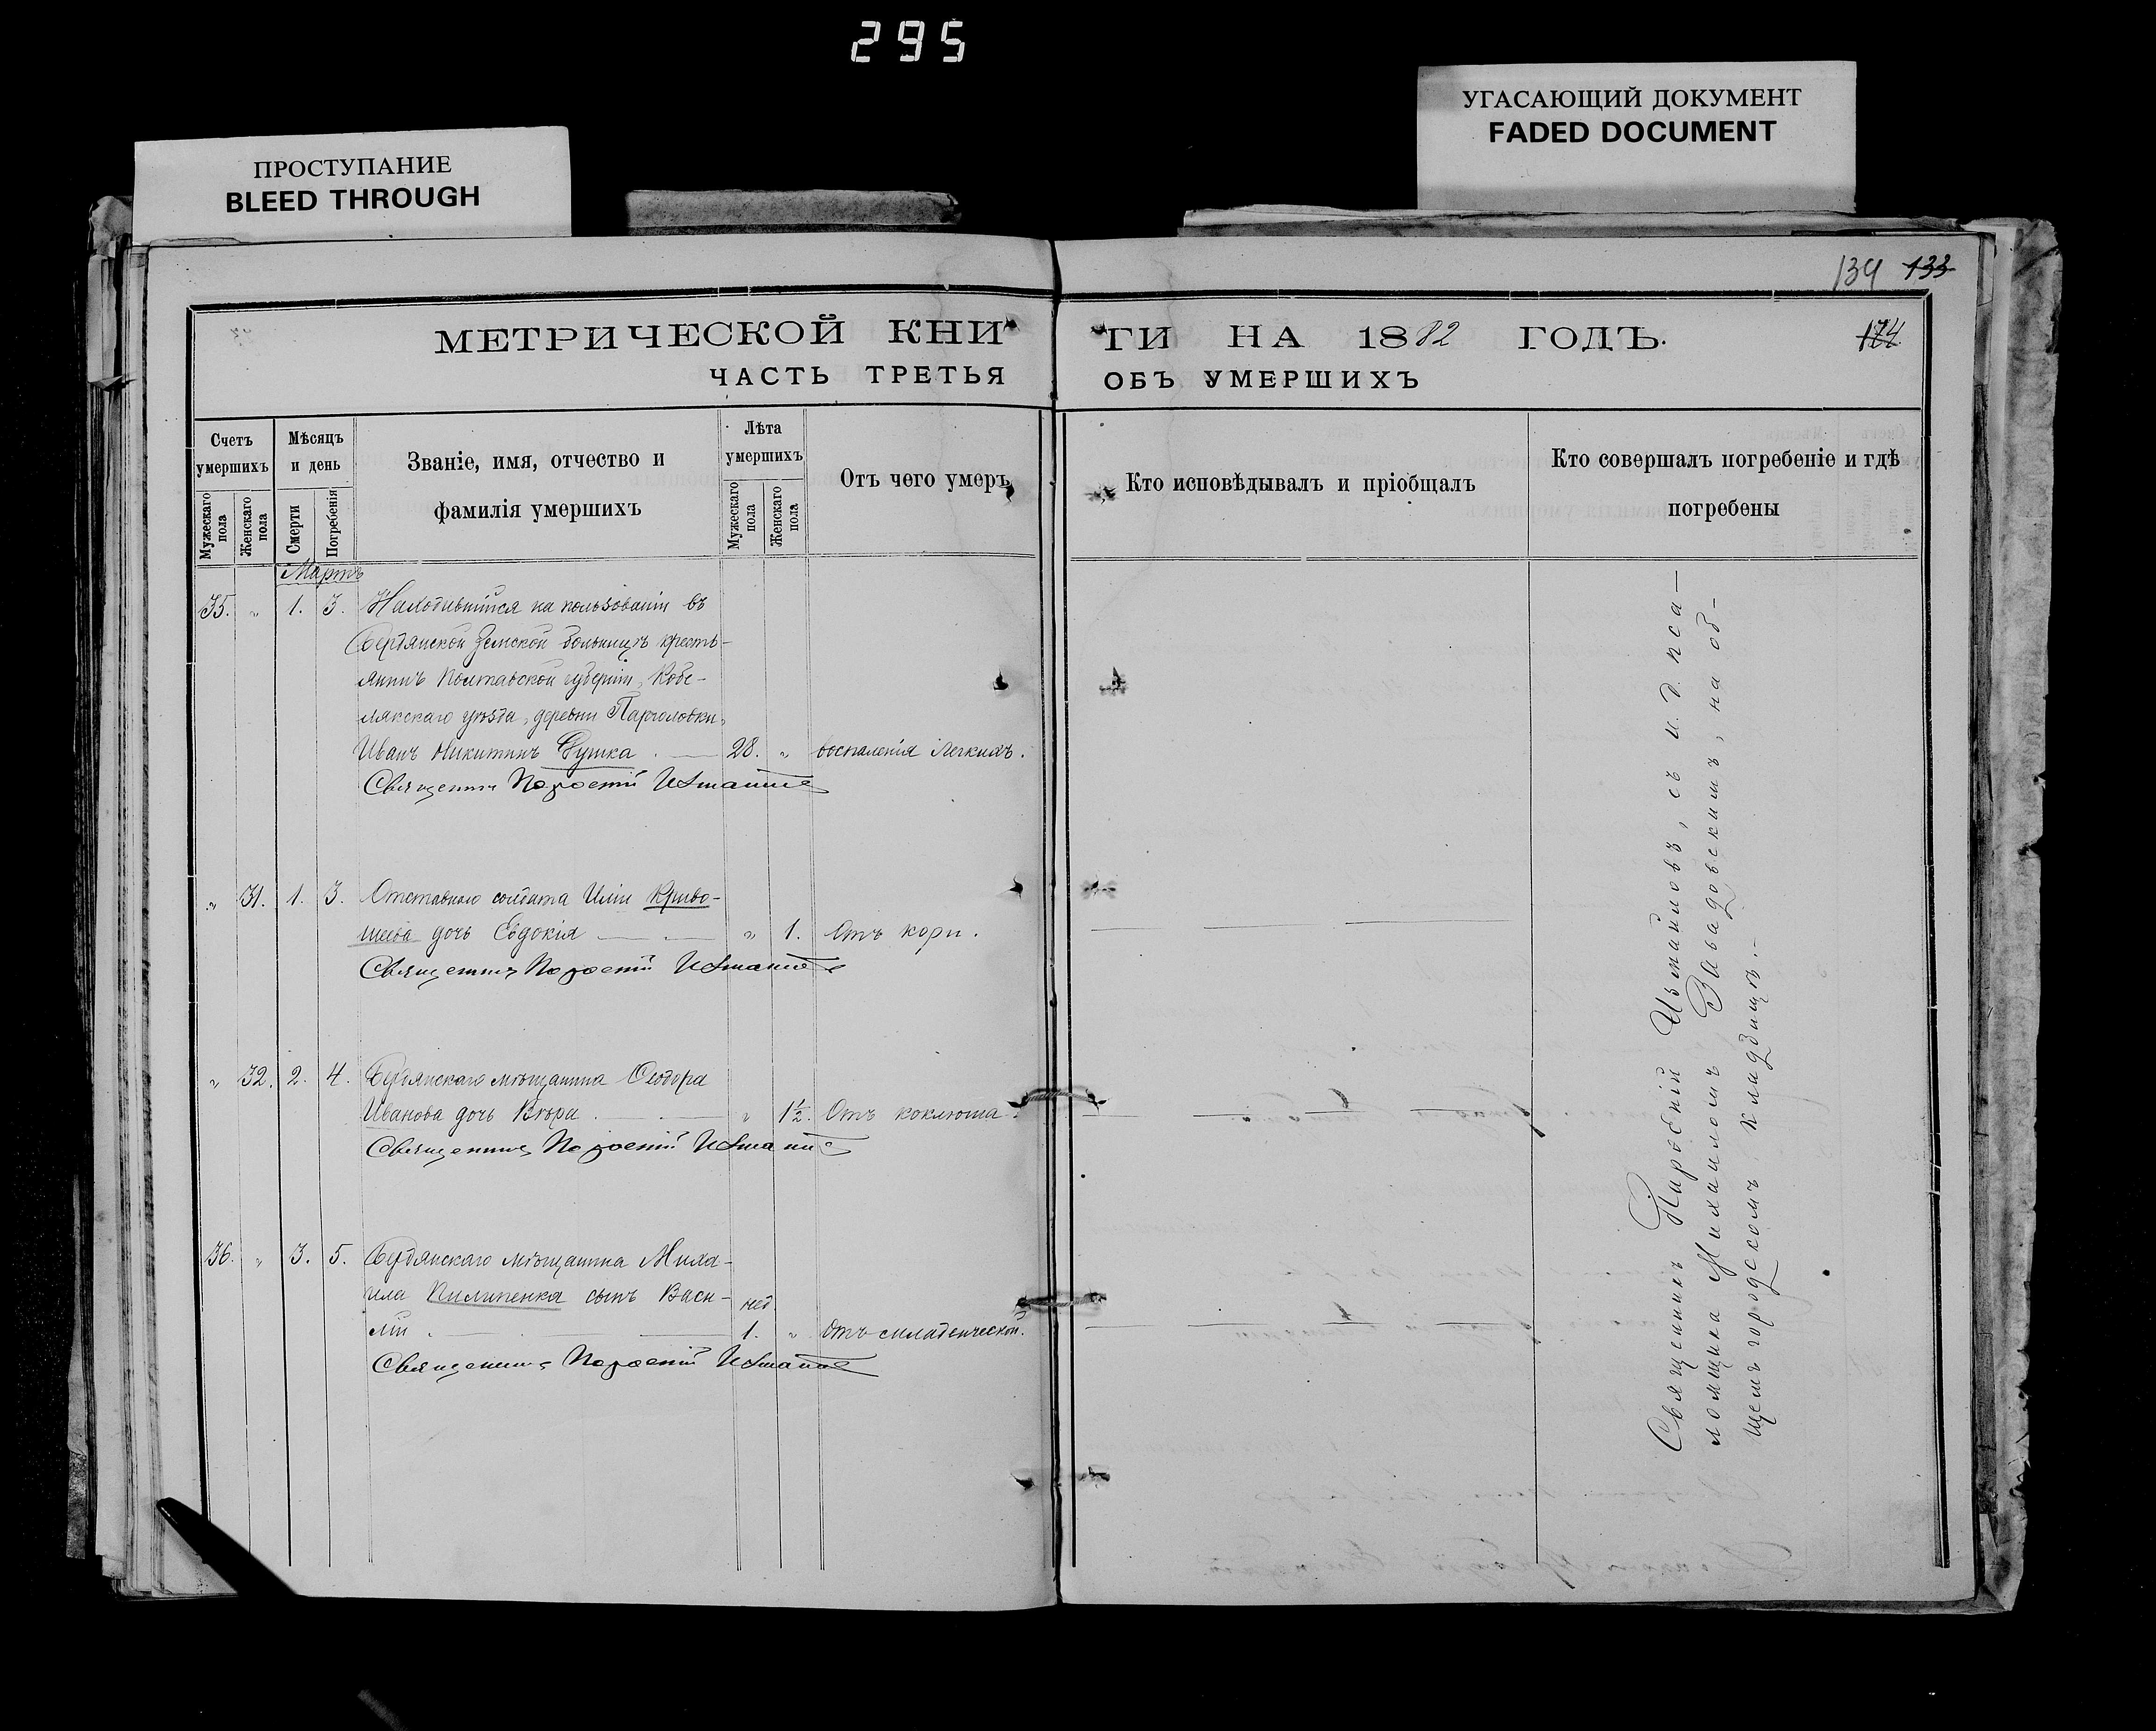 295
УГАСАЮЩИЙ ДОКУМЕНТ
FADED DOCUMENT
ПРОСТУПАНИЕ
BLEED THROUGH
134 133
174
МЕТРИЧЕСКОЙ КНИГИ НА 1882 ГОДЪ.
ЧАСТЬ ТРЕТЬЯ ОБЪ УМЕРШИХЪ
Счетъ умершихъ
Мужескаго пола
Женскаго пола
Мѣсяцъ и день
Смерти
Погребенія
Званіе, имя, отчество и
фамилія умершихъ
Лѣта умершихъ
Мужескаго пола
Женскаго пола
Отъ чего умеръ
Кто исповѣдывалъ и пріобщалъ
Кто совершалъ погребеніе и гдѣ
погребены
Мартъ
35. „ 1. 3. Находившійся на пользованіи въ
Бердянской Земской больницѣ кресть-
янинъ Полтавской губерніи, Кобе-
лякскаго уѣзда, деревни
Иванъ Никитинъ 28. „ воспаленія легкихъ.
Священникъ
„ 31. 1. 3. Отставнаго солдата Иліи Криво-
шеева дочь Евдокія „ 1. Отъ кори.
Священникъ
„ 32. 2. 4. Бердянскаго мѣщанина Ѳеодора
Иванова дочь Вѣра „ 1½. Отъ коклюша.
Священникъ
36. „ 3. 5. Бердянскаго мѣщанина Миха-
ила Пилипенка сынъ Васи-
лій нед. 1. „ Отъ младенческой.
Священникъ
Священникъ Измаиловъ, съ и. д. пса-
ломщика Михаиломъ Завадовскимъ, на об-
щемъ городскомъ кладбищѣ.